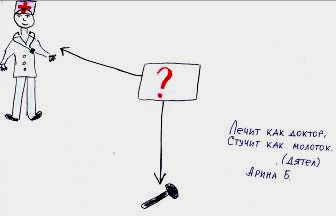 ?
Лечит как доктор,
Стучит как молоток.
(Дятел)
Арина Б.